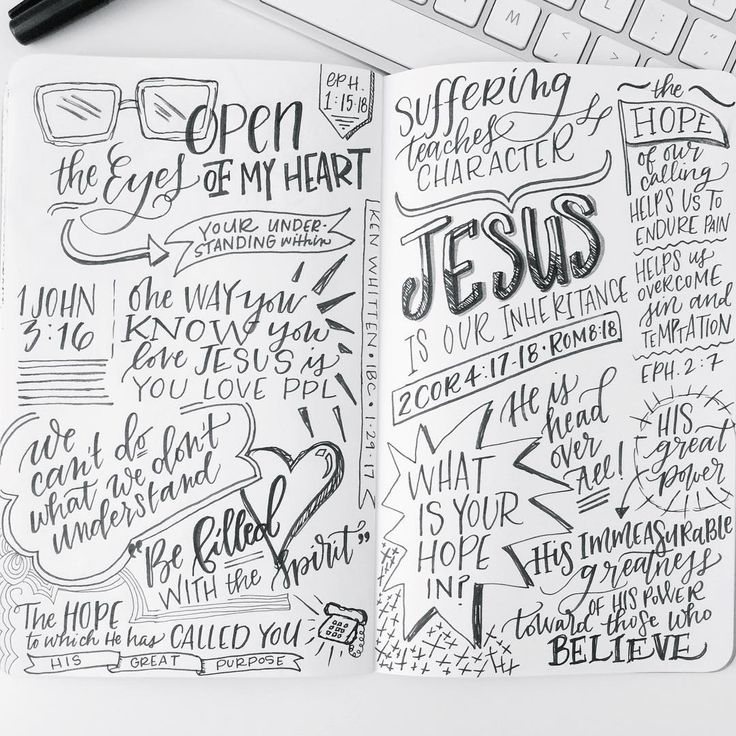 OPEN
the Eyes OF MY HEART
EPH.
1:15-18
YOUR UNDER-
STANDING within
1 JOHN
3:16
One WAY you
KNOW you
love JESUS is
YOU LOVE PPL
KEN WHITTEN • IBC • 1.29.17
We
can't do
what we don't
understand
"Be filled
WITH the Spirit"
The HOPE
to which He has CALLED YOU
HIS GREAT PURPOSE
Suffering
teaches
CHARACTER
JESUS
IS OUR INHERITANCE
2COR 4:17-18 • ROM 8:18
~ the ~
HOPE
of our
calling
HELPS US TO
ENDURE PAIN
HELPS us
OVERCOME
sin and
TEMPTATION
EPH. 2:7
WHAT
IS YOUR
HOPE
IN?
He is
head
over
All!
HIS
great
power
HIS IMMEASURABLE
greatness
OF HIS POWER
toward those who
BELIEVE